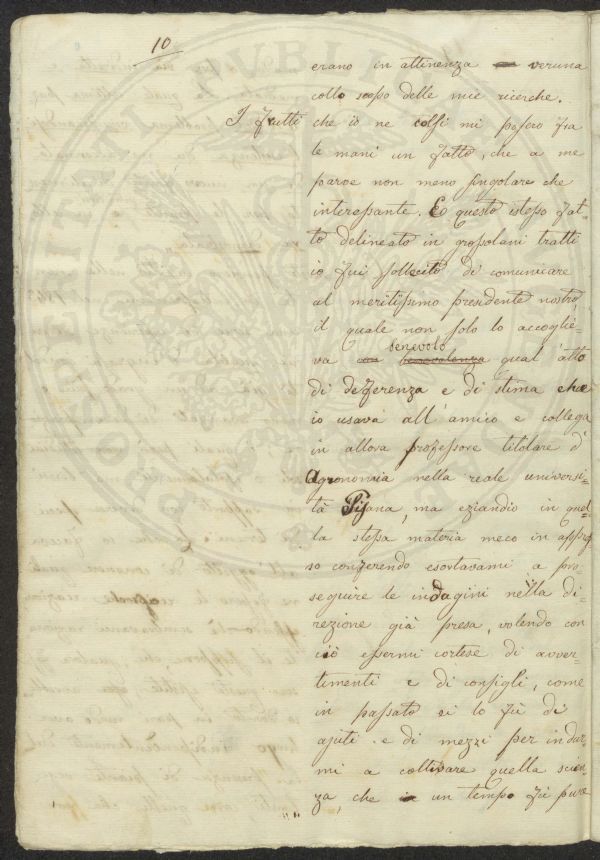 10
erano in attinenza veruna
collo scopo delle mie ricerche.
I frutti che io ne colsi mi posero fra
le mani un fatto, che a me
parve non meno singolare che
interessante. E questo istesso fat-
to delineato in grossolani tratti
io fui sollecito di comunicare
al meritissimo presidente nostro,
il quale non solo lo accoglie-
benevolo
va con benevolenza qual'atto
di deferenza e di stima che
io usava all'amico e collega
in allora professore titolare d'
Agronomia nella reale universi-
tà Pisana, ma eziandio in quel-
la stessa materia meco in appres-
so conferendo esortavami a pro-
seguire le indagini nella di-
rezione già presa, volendo con
ciò essermi cortese di avver-
timenti e di consigli, come
in passato ei lo fù di
ajuti e di mezzi per indur-
mi a coltivare quella scien-
za, che in un tempo fù pure